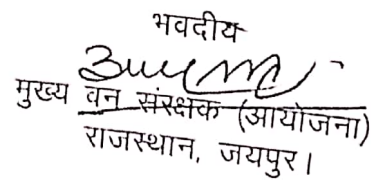 भवदीय
मुख्य वन संरक्षक (आयोजना)
राजस्थान, जयपुर।